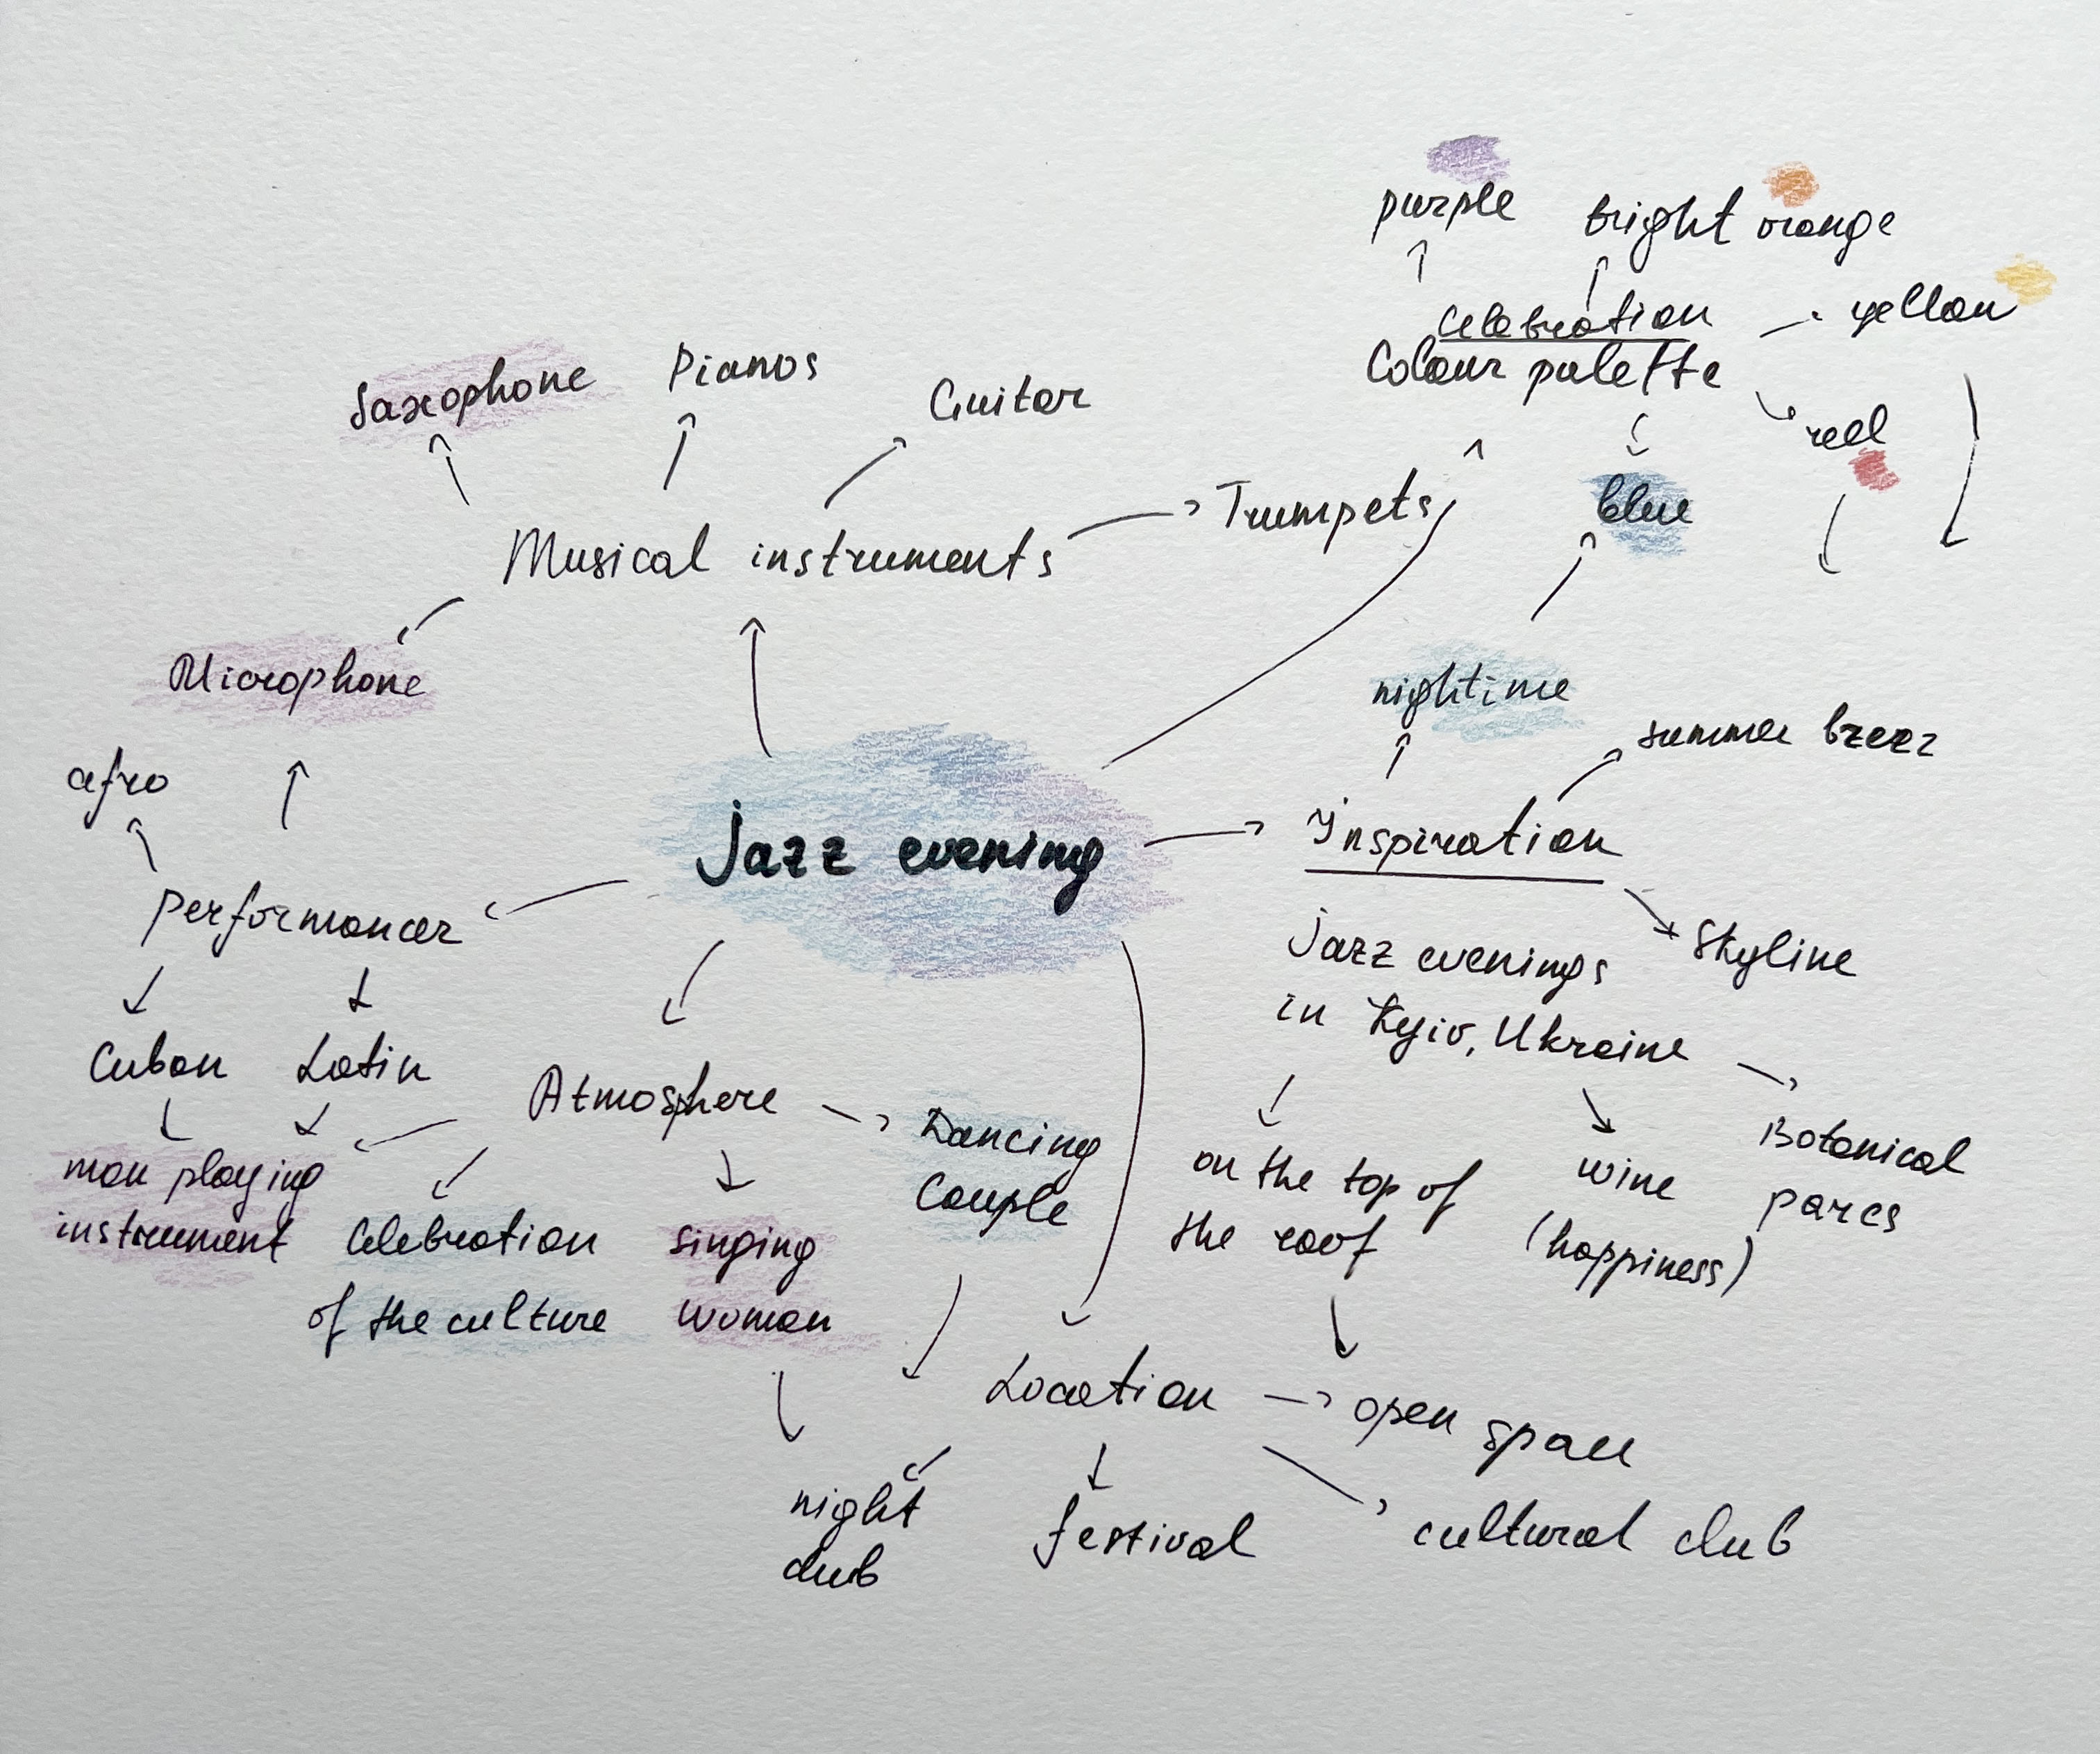 purple
bright orange
Celebration
yellow
Colour palette
red
blue
Saxophone
Pianos
Guitar
Trumpets
Musical instruments
Microphone
nightime
summer breez
afro
Jazz evening
Inspiration
performancer
Skyline
Jazz evenings
in Kyiv, Ukraine
Cuban
Latin
Atmosphere
Dancing
Couple
man playing
instrument
Celebration
of the culture
singing
woman
on the top of
the roof
wine
(happiness)
Botanical
parcs
Location
open space
night
club
festival
cultural club